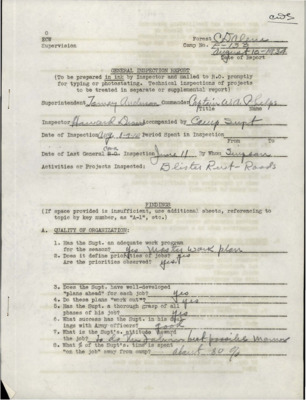 O
ECW
Supervision
Forest C D'Alene
Camp No. F-128
August 10-1934
Date of Report
GENERAL INSPECTION REPORT
(To be prepared in ink by Inspector and mailed to R.O. promptly
for typing or photostating. Technical inspections of projects
to be treated in separate or supplemental report)
Superintendent Commander Captain
Title Name
Inspector Howard Accompanied by Camp Supt
Date of Inspection Aug. Period Spent in Inspection
From To
Date of Last General Inspection June 11 By Whom
Activities or Projects Inspected: Blister Rust Roads
FINDINGS
(If space provided is insufficient, use additional sheets, referencing to
topic by key number, as "A-1", etc.)
A. QUALITY OF ORGANIZATION:
1. Has the Supt. an adequate work program
for the season? yes master work plan
2. Does it define priorities of jobs? yes
Are the priorities observed? yes.
3. Does the Supt. have well-developed
"plans ahead" for each job? yes
4. Do these plans "work out"? yes
5. Has the Supt. a thorough grasp of all
phases of his job? yes
6. What success has the Supt. in his deal-
ings with Army officers? good
7. What is the Supt's. attitude toward
the job? to do his job in best possible manner
8. What % of the Supt's. time is spent
"on the job" away from camp? about 80 %